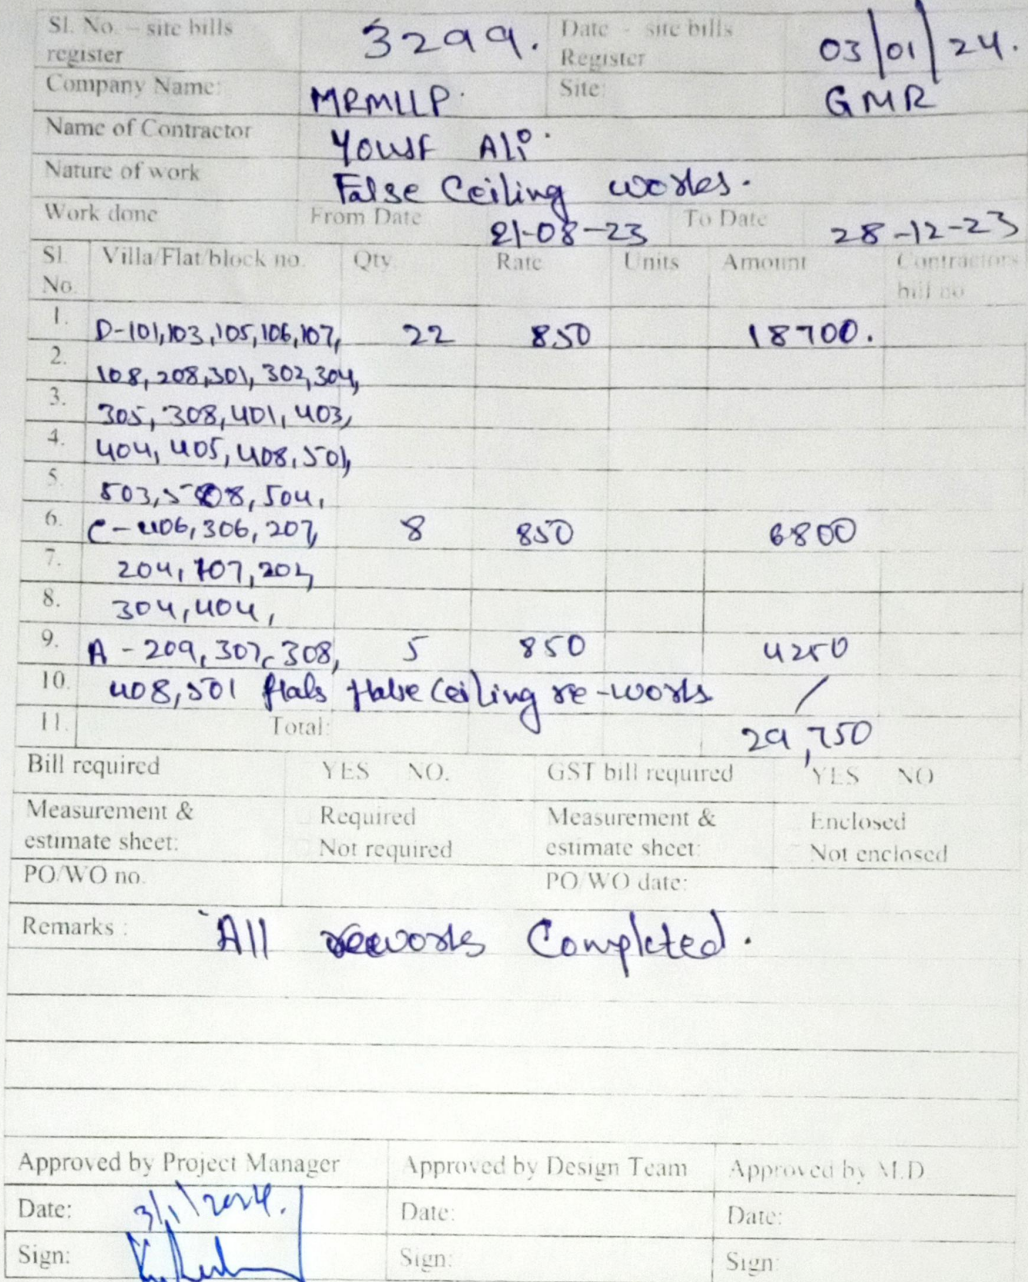 Sl. No. – site bills register 3299. Date - site bills Register 03/01/24.
Company Name: MRMLLP. Site: GMR
Name of Contractor Yousf Ali.
Nature of work False Ceiling works.
Work done From Date 21-08-23 To Date 28-12-23
Sl. No. Villa/Flat/block no. Qty. Rate Units Amount Contractors bill no
1. D-101,103,105,106,107, 22 850 18700.
2. 108,208,301,302,304,
3. 305,308,401,403,
4. 404,405,408,501,
5. 503,508,504,
6. C-406,306,207, 8 850 6800
7. 204,107,202,
8. 304,404,
9. A-209,307,308, 5 850 4250
10. 408,501 flats Ceiling re-works /
11. Total: 29,750
Bill required YES NO. GST bill required YES NO
Measurement & estimate sheet: Required Not required Measurement & estimate sheet: Enclosed Not enclosed
PO/WO no. PO/WO date:
Remarks : All reworks Completed.
Approved by Project Manager Approved by Design Team Approved by M.D
Date: 3/1/2024. Date: Date:
Sign: Sign: Sign: